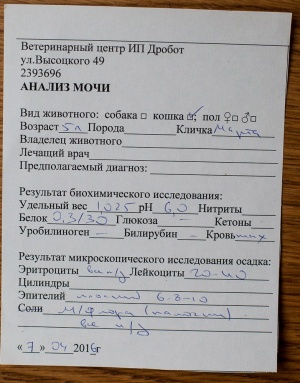 Ветеринарный центр ИП Дробот
ул.Высоцкого 49
2393696
АНАЛИЗ МОЧИ
Вид животного: собака □ кошка □ пол ♀□ ♂□
Возраст 5л Порода Кличка Марта
Владелец животного
Лечащий врач
Предполагаемый диагноз:
Результат биохимического исследования:
Удельный вес 1,025 pH 6,0 Нитриты
Белок 0,3/30 Глюкоза – Кетоны
Уробилиноген – Билирубин – Кровь max
Результат микроскопического исследования осадка:
Эритроциты все п/з Лейкоциты 20-40
Цилиндры
Эпителий плоский 6-8-10
Соли М/флора (палочки)
все п/з
« 7 » 04 2016г